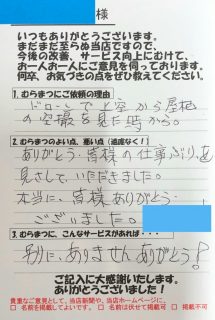 様
いつもありがとうございます。
まだまだ至らぬ当店ですので、
今後の改善、サービス向上にむけて、
お一人お一人にご意見を伺っております。
何卒、お気づきの点をぜひ教えてください。
1. むらまつにご依頼の理由
ドローンで上空から屋根
の空撮を見た時から。
2. むらまつの良い点、悪い点（遠慮なく！）
ありがとう、皆様の仕事ぶりを
見さして、いただきました。
本当に、皆様ありがとう
ございました。
3. むらまつに、こんなサービスがあれば・・・
別に、ありませんありがとう!
ご記入に大感謝いたします。
ありがとうございました！
貴重なご意見として、当店新聞や、当店ホームページに、
□ 名前を掲載してよいです。 □ 名前を伏せて掲載可 □ 掲載不可